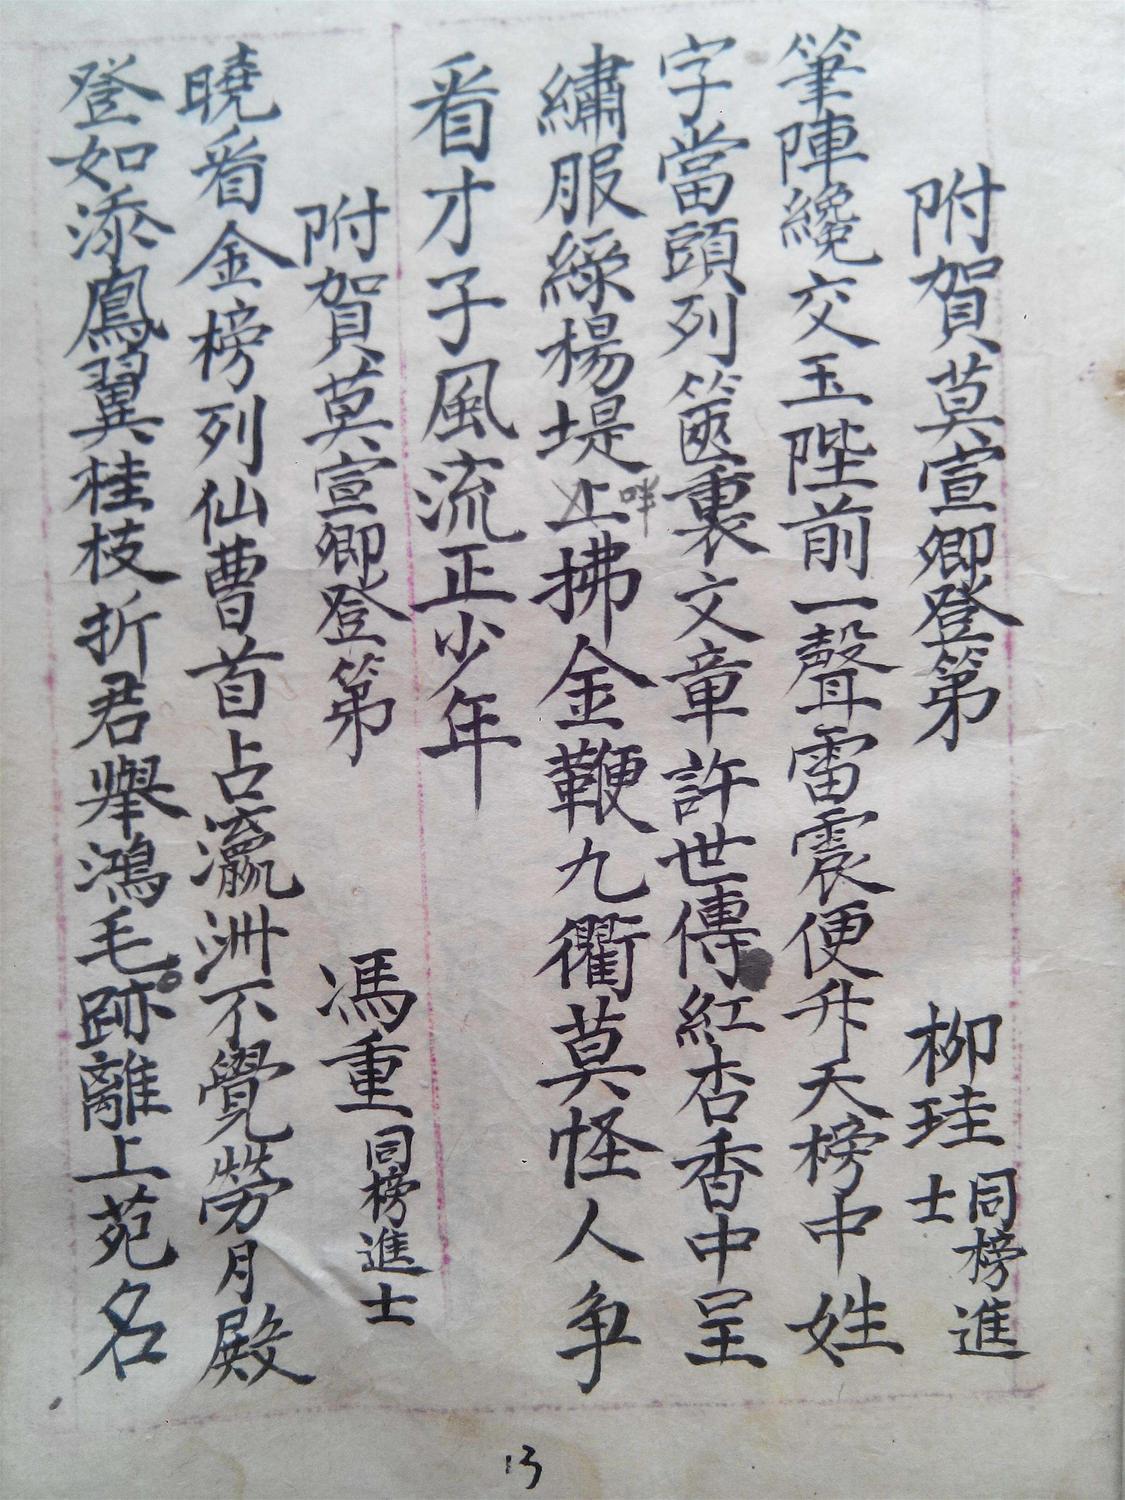 附賀莫宣卿登第 柳珪同榜進士
筆陣纔交玉陛前一聲雷震便升天榜中姓
字當頭列篋裏文章許世傳紅杏香中呈
繡服綠楊堤上畔拂金鞭九衢莫怪人争
看才子風流正少年
附賀莫宣卿登第 馮重同榜進士
曉看金榜列仙曹首占瀛洲不覺勞月殿
登如添鳳翼桂枝折君舉鴻毛跡離上苑名
13